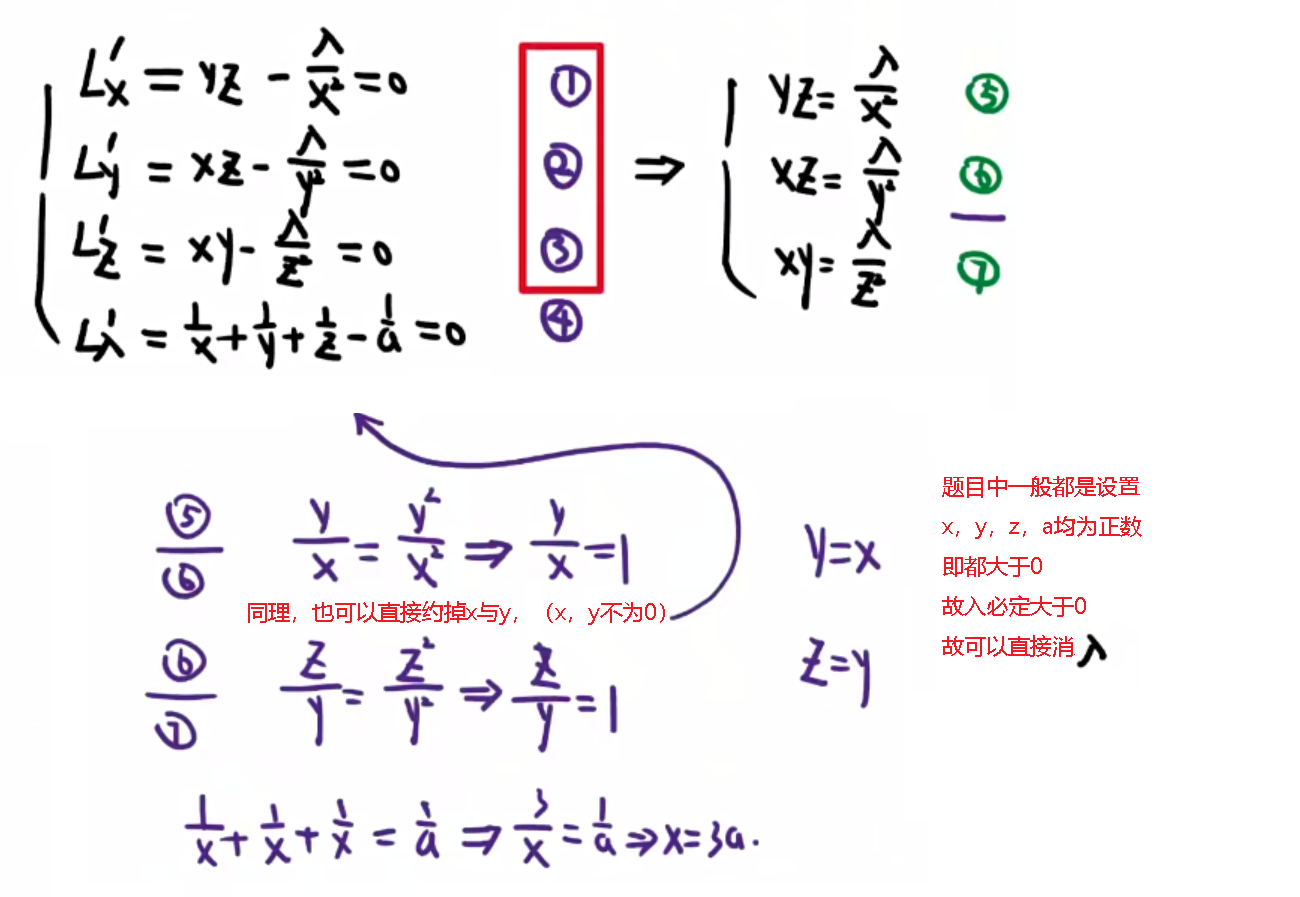 L'x = yz - λ/x² = 0 ①
L'y = xz - λ/y² = 0 ②
L'z = xy - λ/z² = 0 ③
L'λ = 1/x + 1/y + 1/z - 1/a = 0 ④
⇒
yz = λ/x² ⑤
xz = λ/y² ⑥
xy = λ/z² ⑦
⑤/⑥ y/x = y²/x² ⇒ y/x = 1 y=x
同理，也可以直接约掉x与y，（x，y不为0）
⑥/⑦ z/y = z²/y² ⇒ z/y = 1 z=y
1/x + 1/x + 1/x = 1/a ⇒ 3/x = 1/a ⇒ x=3a.
题目中一般都是设置
x，y，z，a均为正数
即都大于0
故入必定大于0
故可以直接消 λ